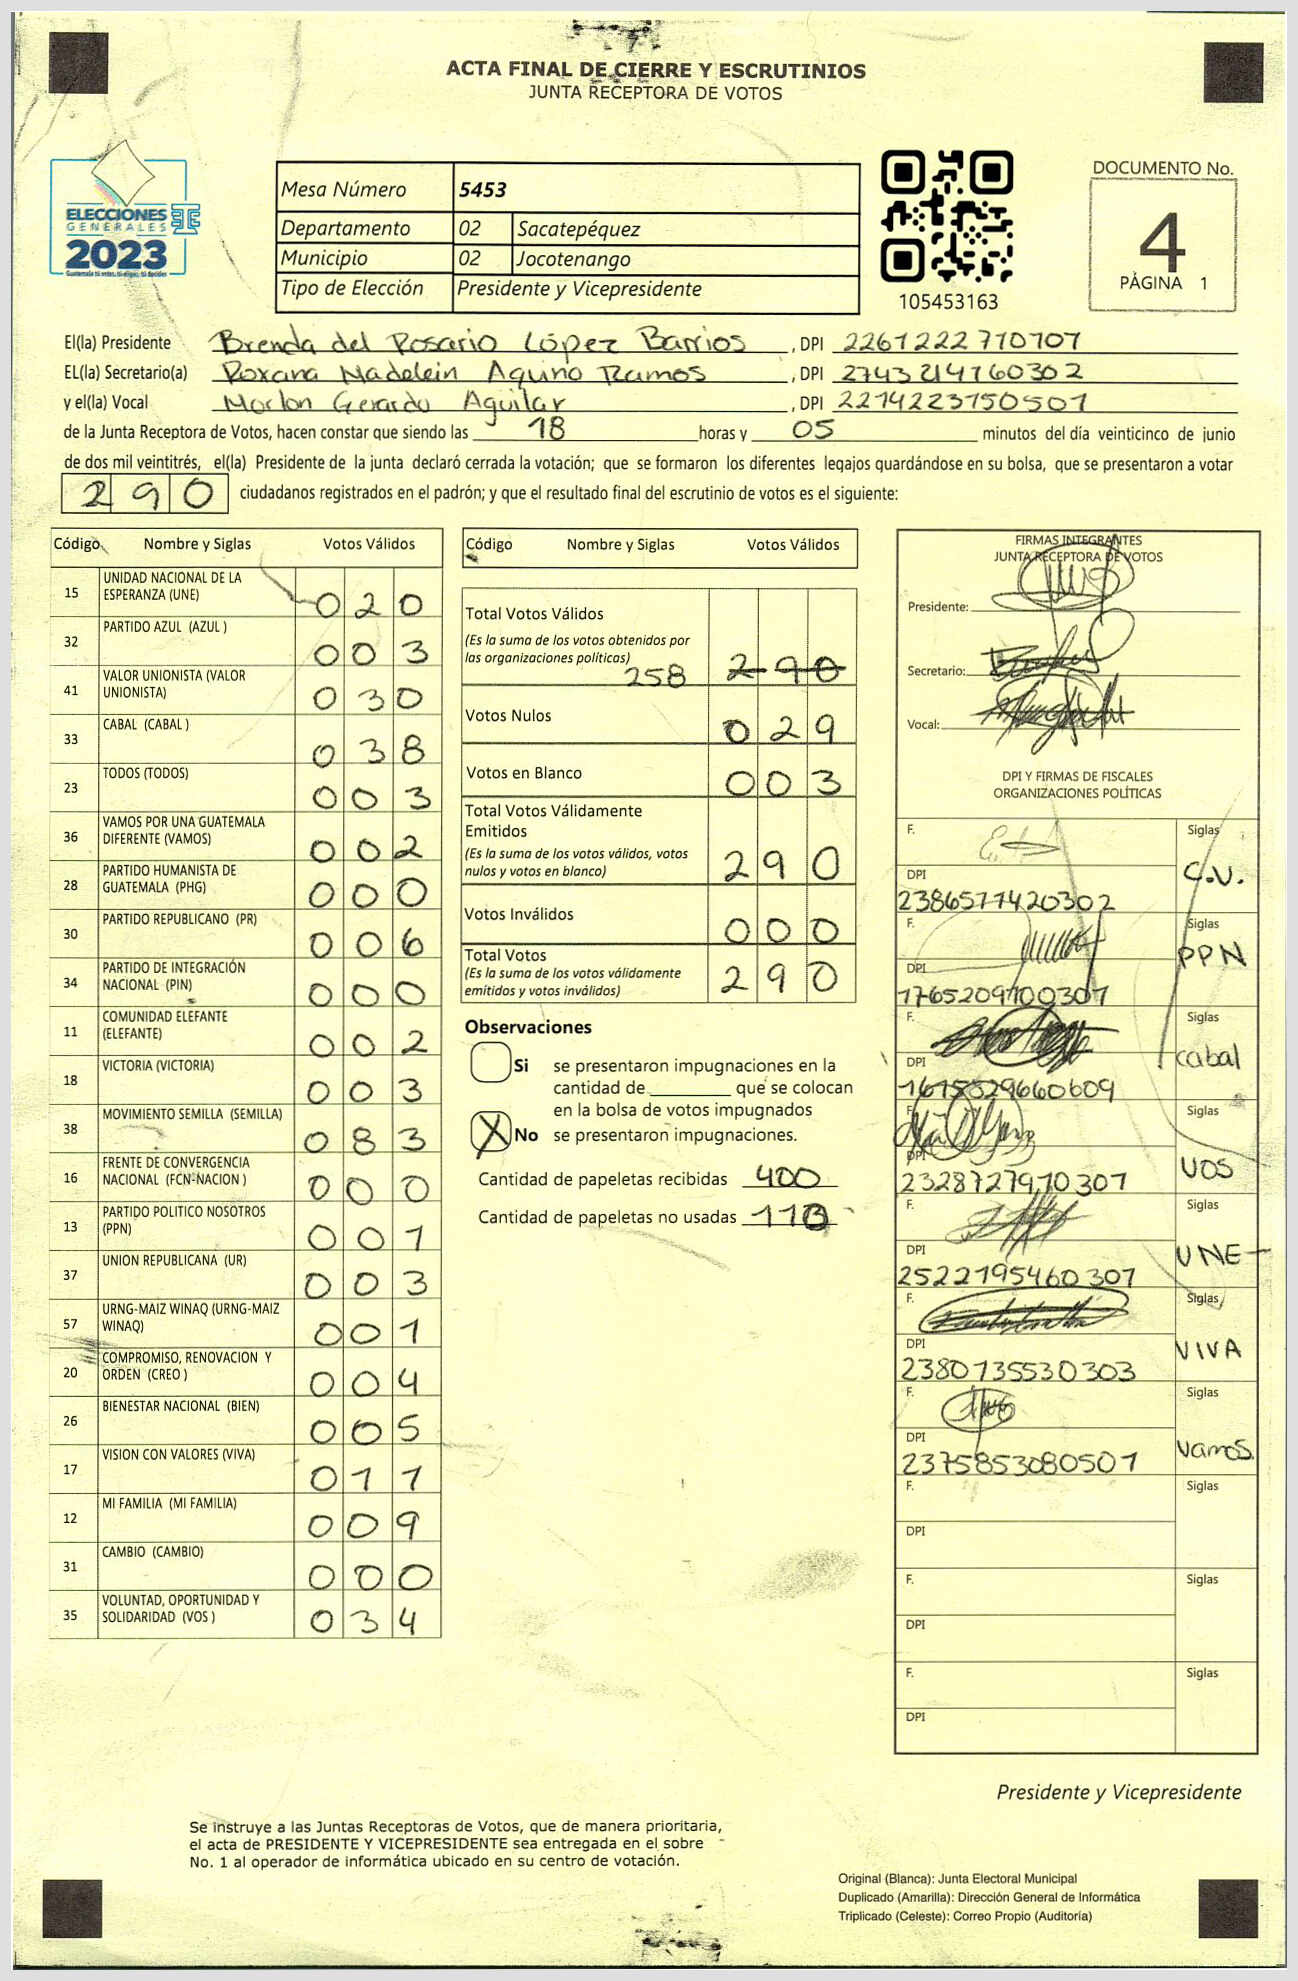 ACTA FINAL DE CIERRE Y ESCRUTINIOS
JUNTA RECEPTORA DE VOTOS
ELECCIONES
GENERALES
2023
Guatemala tú votas, tú eliges, tú decides
Mesa Número 5453
Departamento 02 Sacatepéquez
Municipio 02 Jocotenango
Tipo de Elección Presidente y Vicepresidente
105453163
DOCUMENTO No.
4
PÁGINA 1
El(la) Presidente Brenda del Rosario López Barrios, DPI 2261222710101
EL(la) Secretario(a) Roxana Madelein Aquino Ramos, DPI 2743214760302
y el(la) Vocal Marlon Gerardo Aguilar, DPI 2214223150501
de la Junta Receptora de Votos, hacen constar que siendo las 18 horas y 05 minutos del día veinticinco de junio
de dos mil veintitrés, el(la) Presidente de la junta declaró cerrada la votación; que se formaron los diferentes legajos quardándose en su bolsa, que se presentaron a votar
290 ciudadanos registrados en el padrón; y que el resultado final del escrutinio de votos es el siguiente:
Código Nombre y Siglas Votos Válidos
15 UNIDAD NACIONAL DE LA ESPERANZA (UNE) 020
32 PARTIDO AZUL (AZUL ) 003
41 VALOR UNIONISTA (VALOR UNIONISTA) 030
33 CABAL (CABAL ) 038
23 TODOS (TODOS) 003
36 VAMOS POR UNA GUATEMALA DIFERENTE (VAMOS) 002
28 PARTIDO HUMANISTA DE GUATEMALA (PHG) 000
30 PARTIDO REPUBLICANO (PR) 006
34 PARTIDO DE INTEGRACIÓN NACIONAL (PIN) 000
11 COMUNIDAD ELEFANTE (ELEFANTE) 002
18 VICTORIA (VICTORIA) 003
38 MOVIMIENTO SEMILLA (SEMILLA) 083
16 FRENTE DE CONVERGENCIA NACIONAL (FCN-NACION ) 000
13 PARTIDO POLITICO NOSOTROS (PPN) 001
37 UNION REPUBLICANA (UR) 003
57 URNG-MAIZ WINAQ (URNG-MAIZ WINAQ) 001
20 COMPROMISO, RENOVACION Y ORDEN (CREO ) 004
26 BIENESTAR NACIONAL (BIEN) 005
17 VISION CON VALORES (VIVA) 011
12 MI FAMILIA (MI FAMILIA) 009
31 CAMBIO (CAMBIO) 000
35 VOLUNTAD, OPORTUNIDAD Y SOLIDARIDAD (VOS ) 034
Código Nombre y Siglas Votos Válidos
Total Votos Válidos
(Es la suma de los votos obtenidos por
las organizaciones políticas) 258 290
Votos Nulos 029
Votos en Blanco 003
Total Votos Válidamente
Emitidos
(Es la suma de los votos válidos, votos
nulos y votos en blanco) 290
Votos Inválidos 000
Total Votos
(Es la suma de los votos válidamente
emitidos y votos inválidos) 290
Observaciones
Si se presentaron impugnaciones en la
cantidad de que se colocan
en la bolsa de votos impugnados
X No se presentaron impugnaciones.
Cantidad de papeletas recibidas 400
Cantidad de papeletas no usadas 110
FIRMAS INTEGRANTES
JUNTA RECEPTORA DE VOTOS
Presidente:
Secretario:
Vocal:
DPI Y FIRMAS DE FISCALES
ORGANIZACIONES POLÍTICAS
F. Siglas C.V.
DPI 2386577420302
F. Siglas PPN
DPI 1765209100301
F. Siglas Cabal
DPI 1615829660609
F. Siglas VOS
DPI 2328727970301
F. Siglas UNE
DPI 2522195460301
F. Siglas VIVA
DPI 2380735530303
F. Siglas Vamos
DPI 2375853080501
F. Siglas
DPI
F. Siglas
DPI
F. Siglas
DPI
Presidente y Vicepresidente
Se instruye a las Juntas Receptoras de Votos, que de manera prioritaria,
el acta de PRESIDENTE Y VICEPRESIDENTE sea entregada en el sobre
No. 1 al operador de informática ubicado en su centro de votación.
Original (Blanca): Junta Electoral Municipal
Duplicado (Amarilla): Dirección General de Informática
Triplicado (Celeste): Correo Propio (Auditoría)